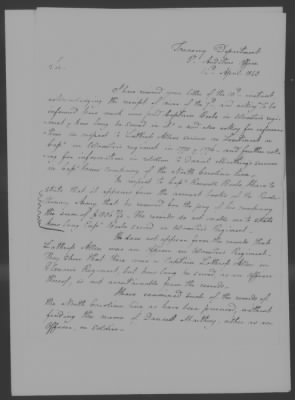 Treasury Department
3d Auditors Office
12th April 1840
Sir,
I have received your letter of the 10th instant,
acknowledging the receipt of mine of the 7th and asking to be
informed how much was paid Captain in regi-
ment, & how long he served in it & and also asking for informa-
tion in respect to Luthrop Allen's services as Lieutenant in
Capt in regiment in 1775 & 1776 - and further ask-
ing for information in relation to Daniel services
in Capt company of the North Carolina line.
In respect to Capt I have to
state that it appears from the account books of the Conti-
nental Army that he received for the pay of his company
the sum of The records do not enable me to state
how long Capt served in Regiment.
It does not appear from the records that
Luthrop Allen was an Officer in Regiment.
They show that there was a Captain Luthrop Allen in
Regiment, but how long he served as an Officer
thereof, is not ascertainable from the records.
I have examined such of the records of
the North Carolina line as have been preserved, without
finding the name of Daniel either as an
Officer, or Soldier.